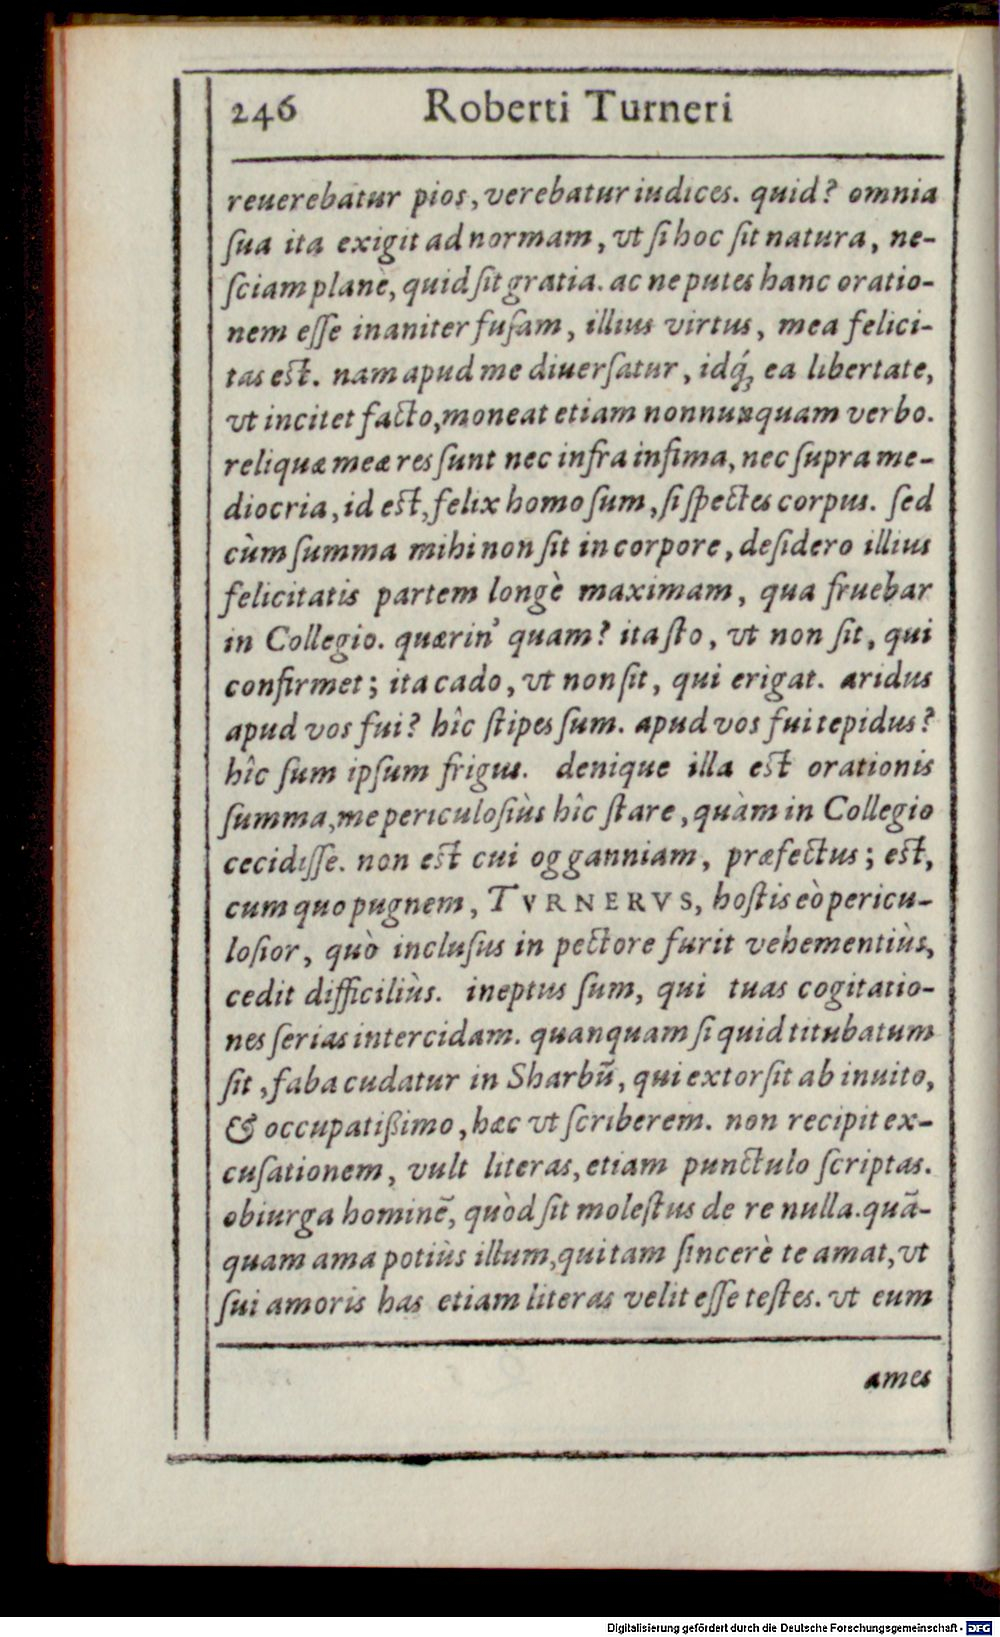 246 Roberti Turneri
reuerebatur pios, verebatur iudices. quid? omnia
ſua ita exigit ad normam, vt ſi hoc ſit natura, ne-
ſciam planè, quid ſit gratia. ac ne putes hanc oratio-
nem eſſe inaniter fuſam, illius virtus, mea felici-
tas eſt. nam apud me diuerſatur, idq́; ea libertate,
vt incitet facto, moneat etiam nonnunquam verbo.
reliquæ meæ res ſunt nec infra infima, nec ſupra me-
diocria, id eſt, felix homo ſum, ſi ſpectes corpus. ſed
cùm ſumma mihi non ſit in corpore, deſidero illius
felicitatis partem longè maximam, qua fruebar
in Collegio. quærin' quam? ita ſto, vt non ſit, qui
confirmet; ita cado, vt non ſit, qui erigat. aridus
apud vos fui? hîc ſtipes ſum. apud vos fui tepidus?
hîc ſum ipſum frigus. denique illa eſt orationis
ſumma, me periculoſiùs hîc ſtare, quàm in Collegio
cecidiſſe. non eſt cui ogganniam, præfectus; eſt,
cum quo pugnem, TVRNERVS, hoſtis eò pericu-
loſior, quò incluſus in pectore furit vehementiùs,
cedit difficiliùs. ineptus ſum, qui tuas cogitatio-
nes ſerias intercidam. quanquam ſi quid titubatum
ſit, faba cudatur in Sharbū, qui extorſit ab inuito,
& occupatißimo, hæc vt ſcriberem. non recipit ex-
cuſationem, vult literas, etiam punctulo ſcriptas.
obiurga hominē, quòd ſit moleſtus de re nulla. quā-
quam ama potiùs illum, qui tam ſincerè te amat, vt
ſui amoris has etiam literas velit eſſe teſtes. vt eum
ames
Digitalisierung gefördert durch die Deutsche Forschungsgemeinschaft - DFG